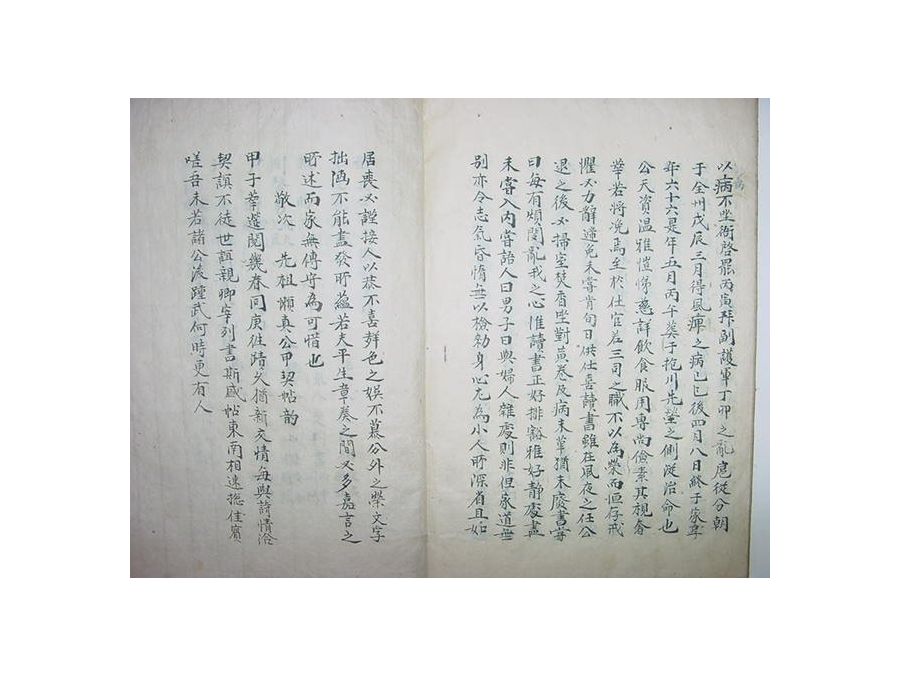 以病不坐衙啓罷丙寅拜副護軍丁卯之亂扈從分朝
于全州戊辰三月得風痺之病己巳後四月八日終于家享
年六十六是年五月丙午葬于抱川先塋之側從治命也
公天資溫雅愷悌慈詳飲食服用專尚儉素其視奢
華若將浼焉至於仕宦君三司之職不以為榮而恒存戒
懼必力辭遞免未嘗肯旬日供仕喜讀書雖在夙夜之任公
退之後必掃室焚香坐對黃卷及病未革猶未廢書嘗
曰每有煩悶亂我之心惟讀書正好排豁雅好靜處晝
未嘗入內嘗語人曰男子日與婦人雜處則非但家道無
別亦令志氣昏惰無以檢勑身心尤為小人所深省且如
居喪必謹接人以恭不喜聲色之娛不慕分外之榮文字
拙澁不能盡發所蘊若夫平生章奏之間必多嘉言之
所述而家無傳守為可惜也
敬次先祖懶真公甲契帖韵
甲子華邊閱幾春同庚徃蹟久猶新交情每與詩情洽
契誼不徒世誼親卿宰列書斯盛帖東南相速揔佳賓
嗟吾未若諸公後踵武何時更有人